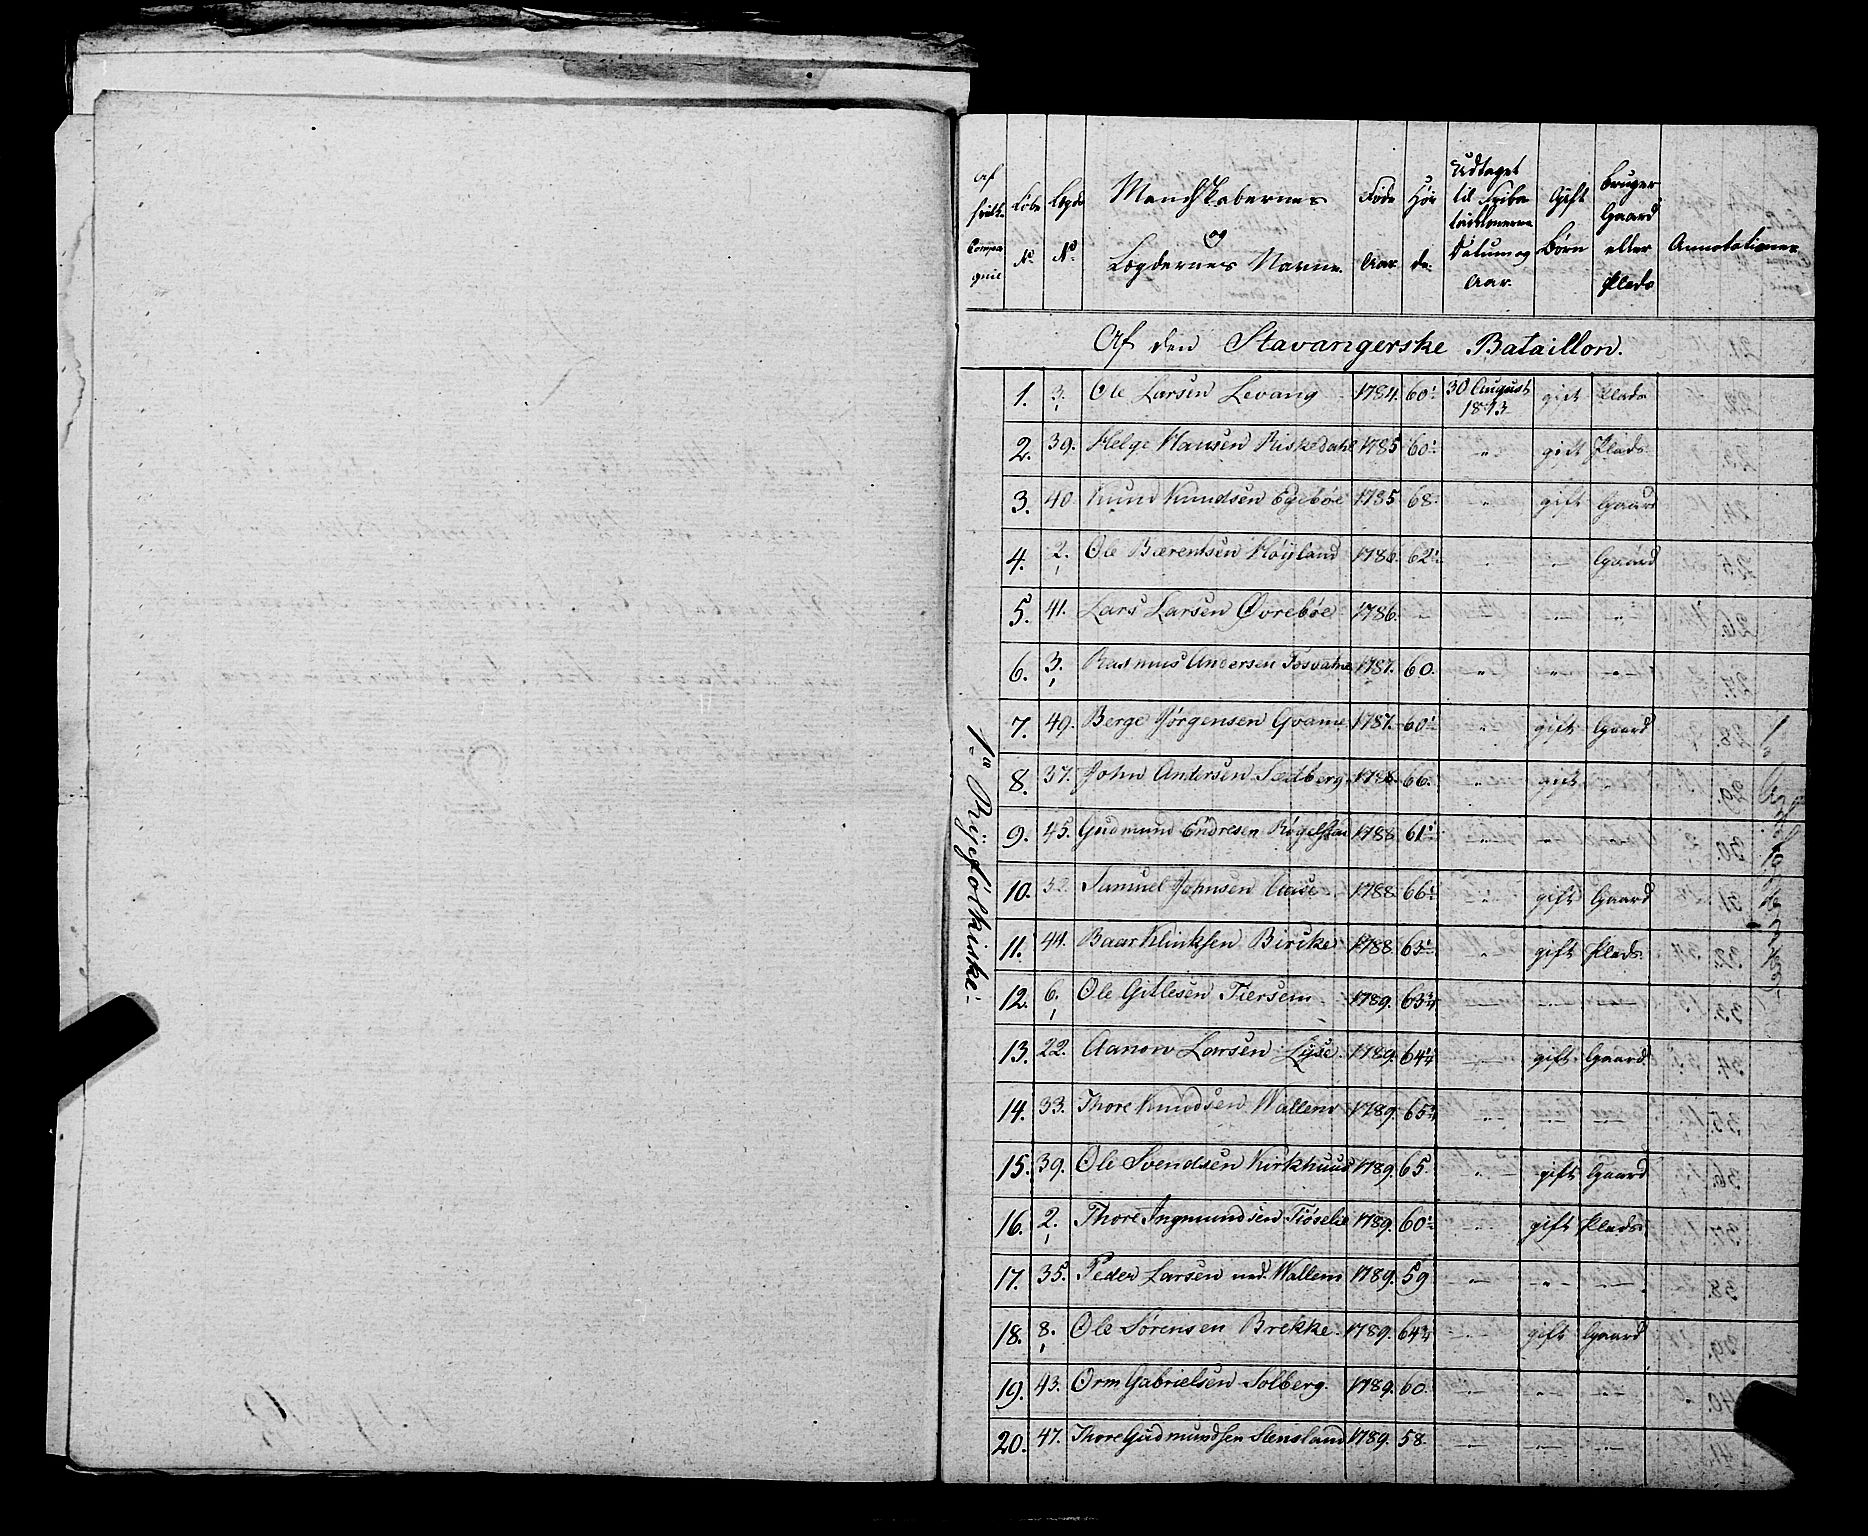 Af
Compa
gnie
Löbe
No
Lægds
No
Mandskabernes
og
Lægdernes Navne.
Föde
Aar
Höi
de
Udtaget
til
Datum og
Aar.
Gift
Börn
bruger
Gaard
eller
Plads
Annotationer
Af den Stavangerske Bataillon.
1. 3. 1 Ole Larsen Levang 1784. 60 30 August 1813 gift Plads
2. 39. Helge Hansen Riskedahl 1785 60 " gift Plads
3. 40 Knud Knudsen Egebøe 1785 68 " gift Gaard
4. 2. 1 Ole Bærentsen Høyland 1786. 62 " " Gaard
5. 41. Lars Larsen Øvrebøe 1786. " " " "
6. 3. 1 Rasmus Andersen 1787. 60. " " "
7. 49. Berge Jørgensen Qvame 1787. 60 " gift Gaard
8. 37. John Andersen Sedberg 1788 66. " gift "
9. 45. Gudmund Endresen 1788 61 " " "
10. Samuel Johnsen Aase 1788 66 " gift Gaard
11. 44. Baar Klinksen Bircke 1788. 63 " gift Plads
12. 6. 1 Ole Gitlesen Tiersem 1789. 63 " " "
13. 22. Aanon Larsen Lyse 1789. 64 " gift Gaard
14. 33. Thore Knudsen Wallem 1789. 65 " " "
15. 39. Ole Svendsen Kirkhuus 1789. 65. " gift Gaard
16. 2. 1 Thore Ingmundsen 1789. 60 " gift Plads
17. 35. Peder Larsen ned. Wallem 1789. 59 " " "
18. 8. 1 Ole Sørensen Brekke. 1789. 64 " gift Gaard
19. 43. Orm Gabrielsen Solberg. 1789. 60 " " "
20. 47. Thore Gudmundsen Stensland 1789. 58. " " "